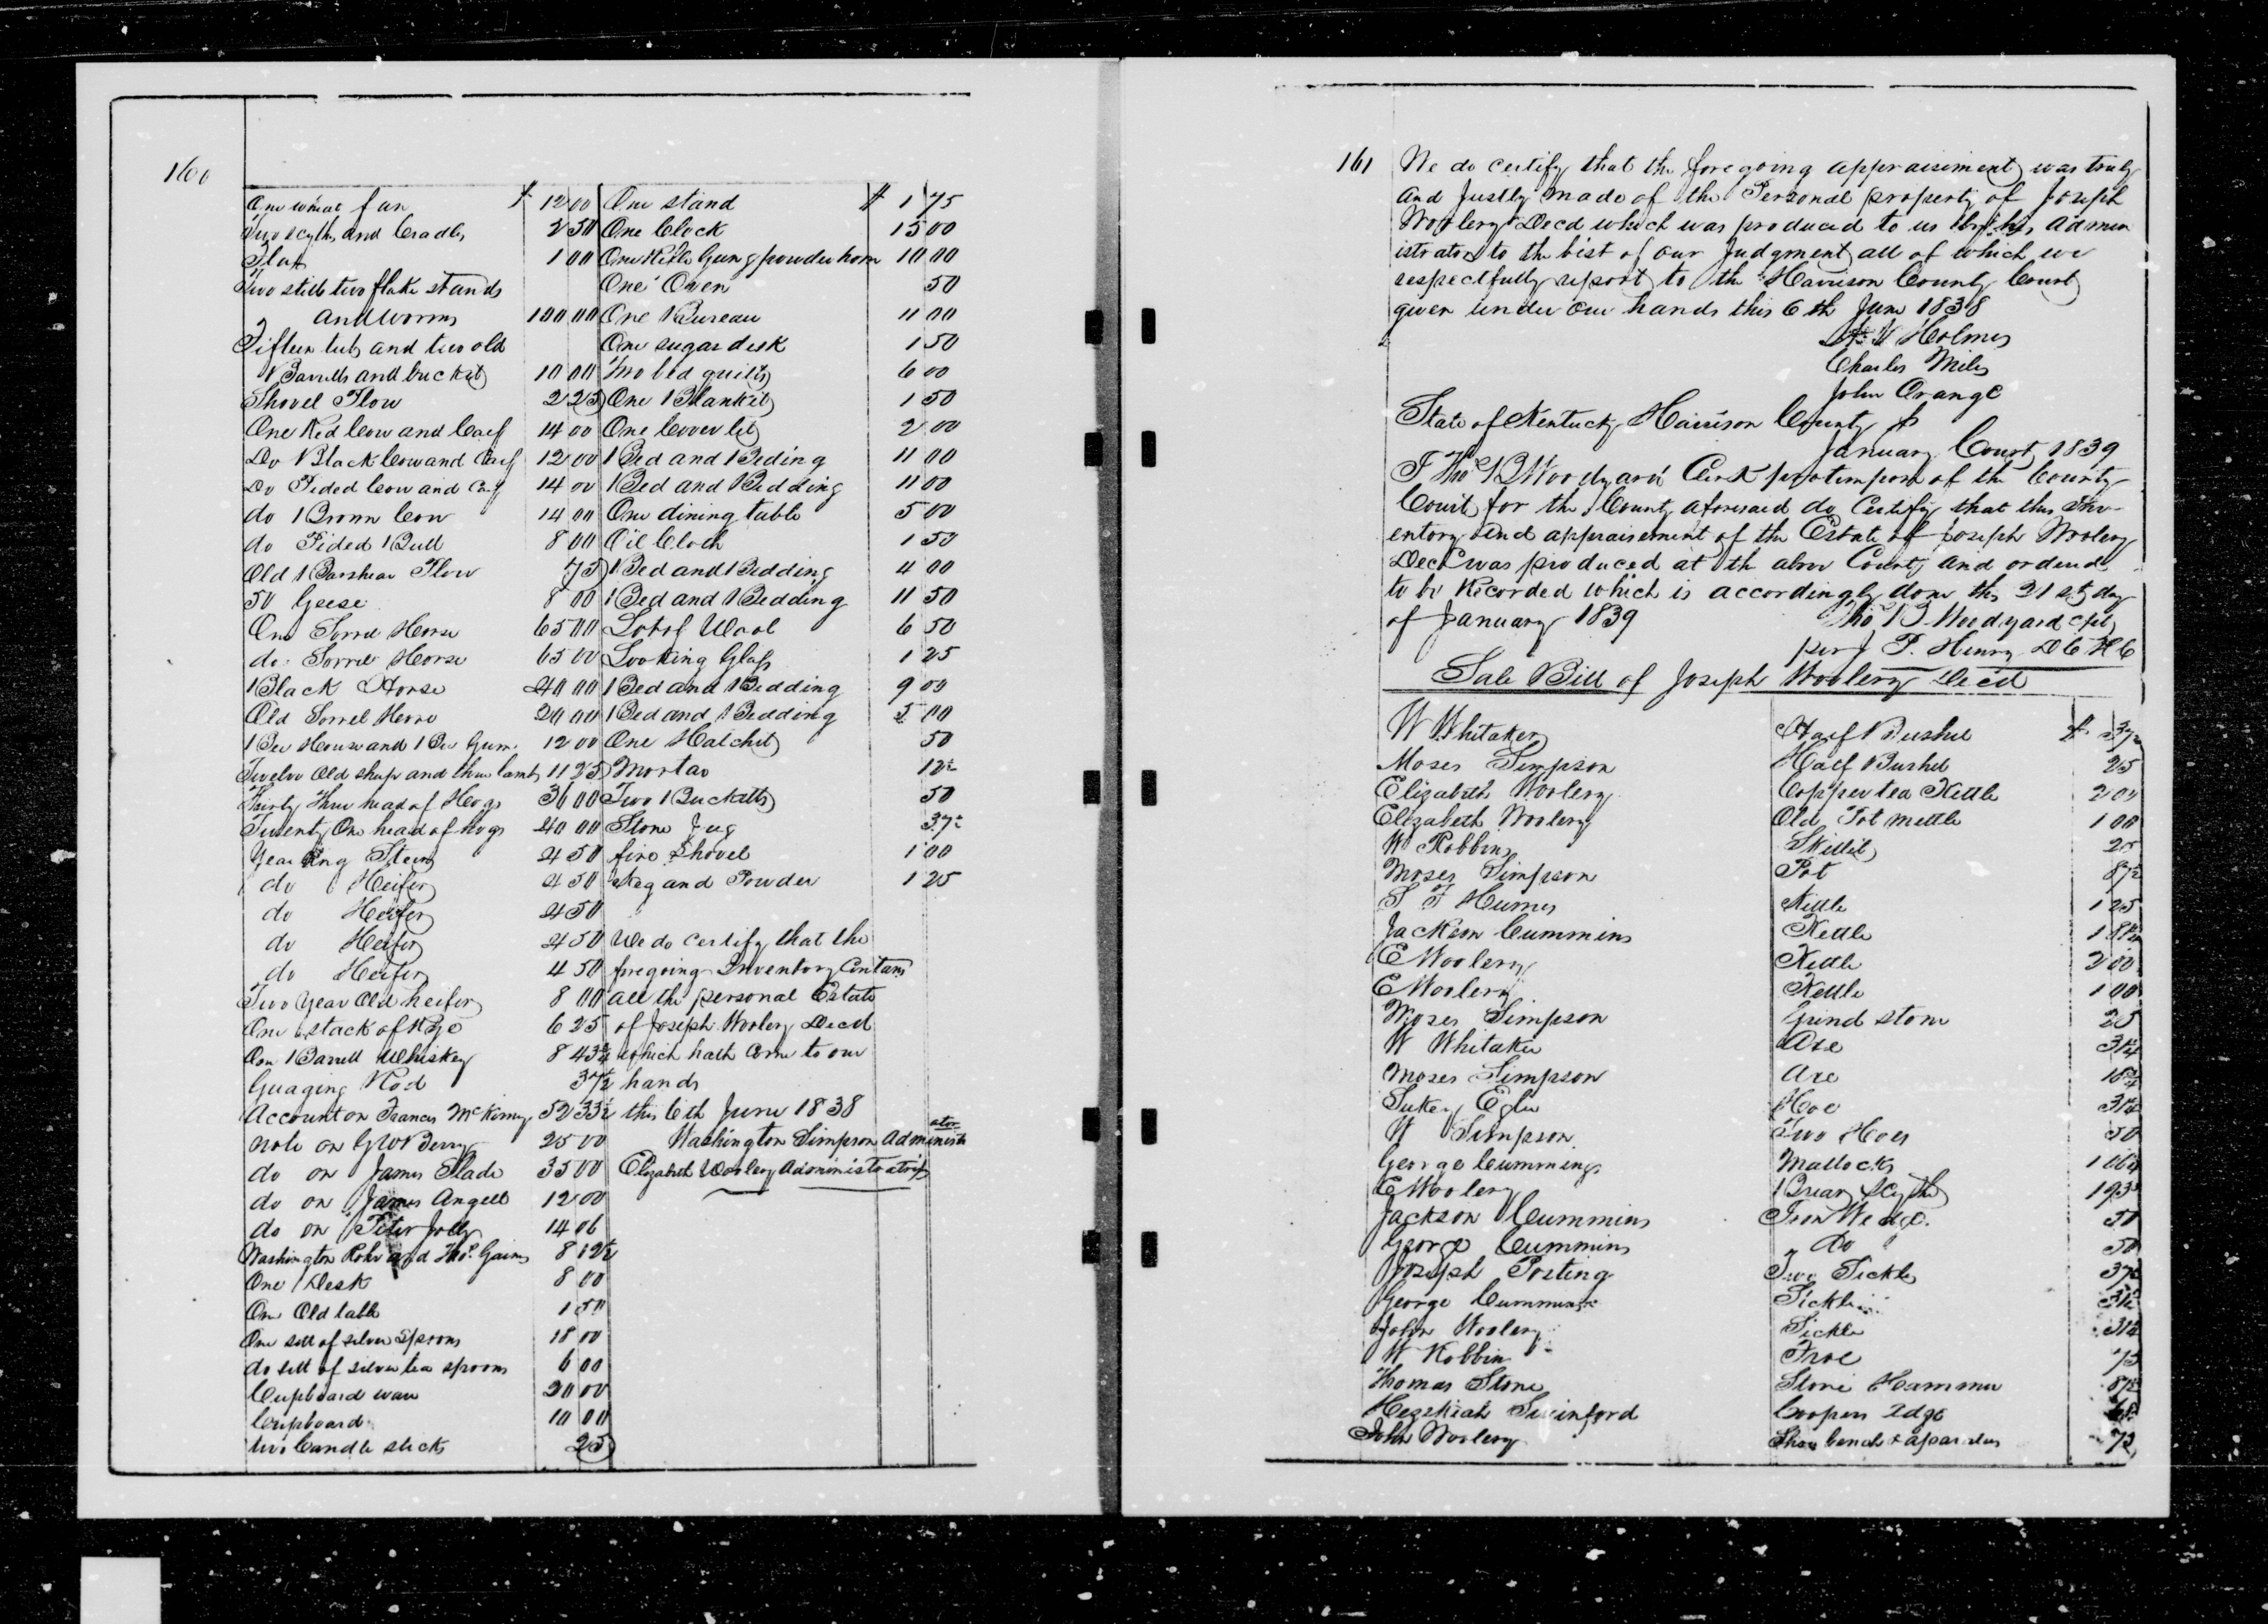 160
One wheat fan $ 12 00
Two scythes and Cradles 2 50
Flax 1 00
Two stills two flake stands
and worms 100 00
Fifteen tubs and two old
Barrells and bucket 10 00
Shovel Plow 2 25
One Red Cow and Calf 14 00
Do Black Cow and Calf 12 00
Do Pided Cow and Calf 14 00
do Brown Cow 14 00
do Pided Bull 8 00
Old Barshear Plow 75
50 Geese 8 00
One Sorrel Horse 65 00
do Sorrel Horse 65 00
Black Horse 40 00
Old Sorrel Horse 20 00
1 Bee House and 1 Bee Gum 12 00
Twelve Old sheep and three lambs 11 25
Thirty three head of Hogs 36 00
Twenty One head of hogs 40 00
Yearling Steer 4 50
do Heifer 4 50
do Heifer 4 50
do Heifer 4 50
do Heifer 4 50
Two Year Old heifer 8 00
One stack of Rye 6 25
One Barrell Whiskey 8 43¾
Guaging Rod 37½
Account on Francis McKinney 52 33½
note on G W Berry 25 00
do on James Slade 35 00
do on James Angell 12 00
do on Peter Jolly 14 06
Washington Rohr and Thos. Gaines 8 12½
One Desk 8 00
One Old table 1 50
One sett of silver Spoons 18 00
do sett of silver tea spoons 6 00
Cupboard ware 20 00
Cupboard 10 00
two Candle sticks 25
One stand $ 1 75
One Clock 15 00
One Rifle Gun & powder horn 10 00
One Oven 50
One Bureau 11 00
One sugar desk 1 50
Two bed quilts 6 00
One Blanket 1 50
One Coverlet 2 00
1 Bed and Beding 11 00
1 Bed and Bedding 11 00
One dining table 5 00
Oil Cloth 1 50
1 Bed and Bedding 4 00
1 Bed and Bedding 11 50
Lot of Wool 6 50
Looking Glass 1 25
1 Bed and Bedding 9 00
1 Bed and Bedding 5 00
One Hatchet 50
Mortar 12½
Two Bucketts 50
Stone Jug 37½
fire Shovel 1 00
Keg and Powder 1 25
We do certify that the
foregoing Inventory Contains
all the personal Estate
of Joseph Woolery Decd
which hath Come to our
hands
this 6th June 1838
Washington Simpson Administrator
Elizabeth Woolery Administratrix
161
We do certify that the foregoing appraisiment was truly
and Justly made of the Personal property of Joseph
Woolery Decd which was produced to us by his admin
istrators to the best of our Judgment all of which we
respectfully report to the Harrison County Court
given under our hands this 6th June 1838
W Holmes
Charles Miles
John Orange
State of Kentucky Harrison County
January Court 1839
I Thos B Woodyard Clerk protempore of the County
Court for the County aforesaid do Certify that this Inv-
entory and appraisement of the Estate of Joseph Woolery
Decd was produced at the above County and ordered
to be Recorded which is accordingly done this 21st day
of January 1839 Tho B Woodyard
per J P. Henry D C H C
Sale Bill of Joseph Woolery Decd
W Whitaker Half Bushel $ 37½
Moses Simpson Half Bushel 25
Elizabeth Woolery Copper tea Kettle 2 00
Elizabeth Woolery Old Pot mettle 1 00
W Robbins Skillet 25
Moses Simpson Pot 87½
S F Humes Kettle 1 25
Jackson Cummins Kettle 1 81¼
E Woolery Kettle 2 00
E Woolery Kettle 1 00
Moses Simpson Grind stone 25
W Whitaker Axe 31¼
Moses Simpson Axe 18¾
Sukey Egler Hoe 31¼
W Simpson Two Hoes 50
George Cummings Mattocks 1 06¼
E Woolery Briar Scythe 1 93¾
Jackson Cummins Iron Wedge. 50
George Cummins Do 50
Joseph Posting Two Sickles 37½
George Cummins Sickle 31¼
John Woolery Sickle 31¼
W Robbin Froe 75
Thomas Stone Stone Hammer 87½
Hezekiah Swinford Coopers Adge
John Woolery Shoe bench & aparatus 75